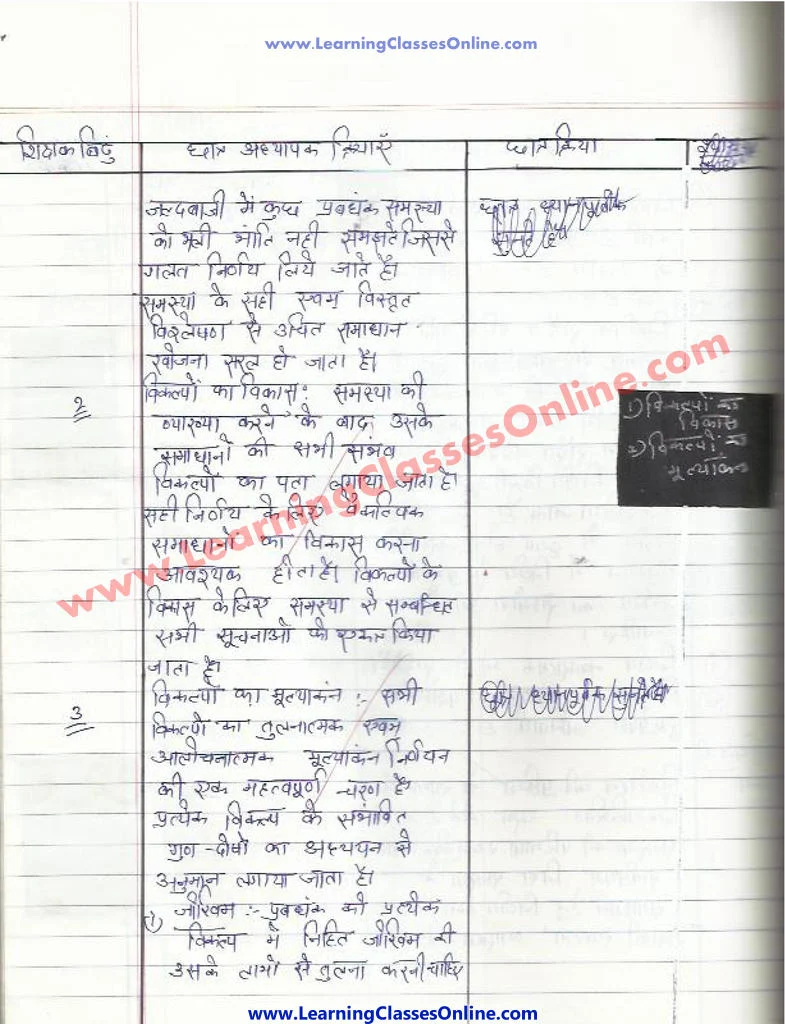 www.LearningClassesOnline.com
शिक्षक बिंदु छात्र अध्यापक क्रियाएँ छात्र क्रिया
जल्दबाजी में कुछ प्रबधंक समस्या
को भली भांति नही समझते जिससे
गलत निर्णय लिये जाते है।
समस्या के सही एवम् विस्तृत
विश्लेषण से उचित समाधान
खोजना सरल हो जाता है।
2 विकल्पों का विकास: समस्या की
व्याख्या करने के बाद उसके
समाधानों की सभी संभव
विकल्पों का पता लगाया जाता है।
सही निर्णय के लिए वैकल्पिक
समाधानों का विकास करना
आवश्यक होता है। विकल्पों के
विकास के लिए समस्या से सम्बन्धित
सभी सूचनाओं को एकत्र किया
जाता है।
3 विकल्पों का मूल्याकंन :- सभी
विकल्पों का तुलनात्मक एवम
आलोचनात्मक मूल्याकंन निर्णयन
की एक महत्वपूर्ण चरण है।
प्रत्येक विकल्प के संभावित
गुण-दोषों का अध्ययन से
अनुमान लगाया जाता है।
1) जोखिम :- प्रबधंक को प्रत्येक
विकल्प में निहित जोखिम की
उसके लाभों से तुलना करनी चाहिए
छात्र ध्यानपूर्वक
सुनते है।
छात्र ध्यानपूर्वक सुनते है।
1) विकल्पों का
विकास
2) विकल्पों का
मूल्याकंन
www.LearningClassesOnline.com
www.LearningClassesOnline.com